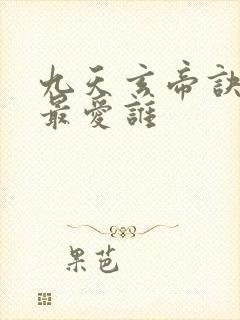 九天玄帝訣
最愛誰
果芭